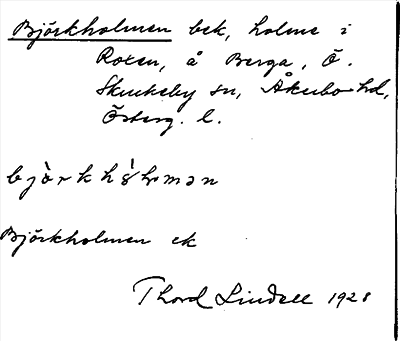 Björkholmen bek, holme i
Roxen, å Berga, Ö.
Skrukeby sn, Åkerbo hd,
Österg. l.
björkhol​mən
Björkholmen ek
Thord Lindell 1928